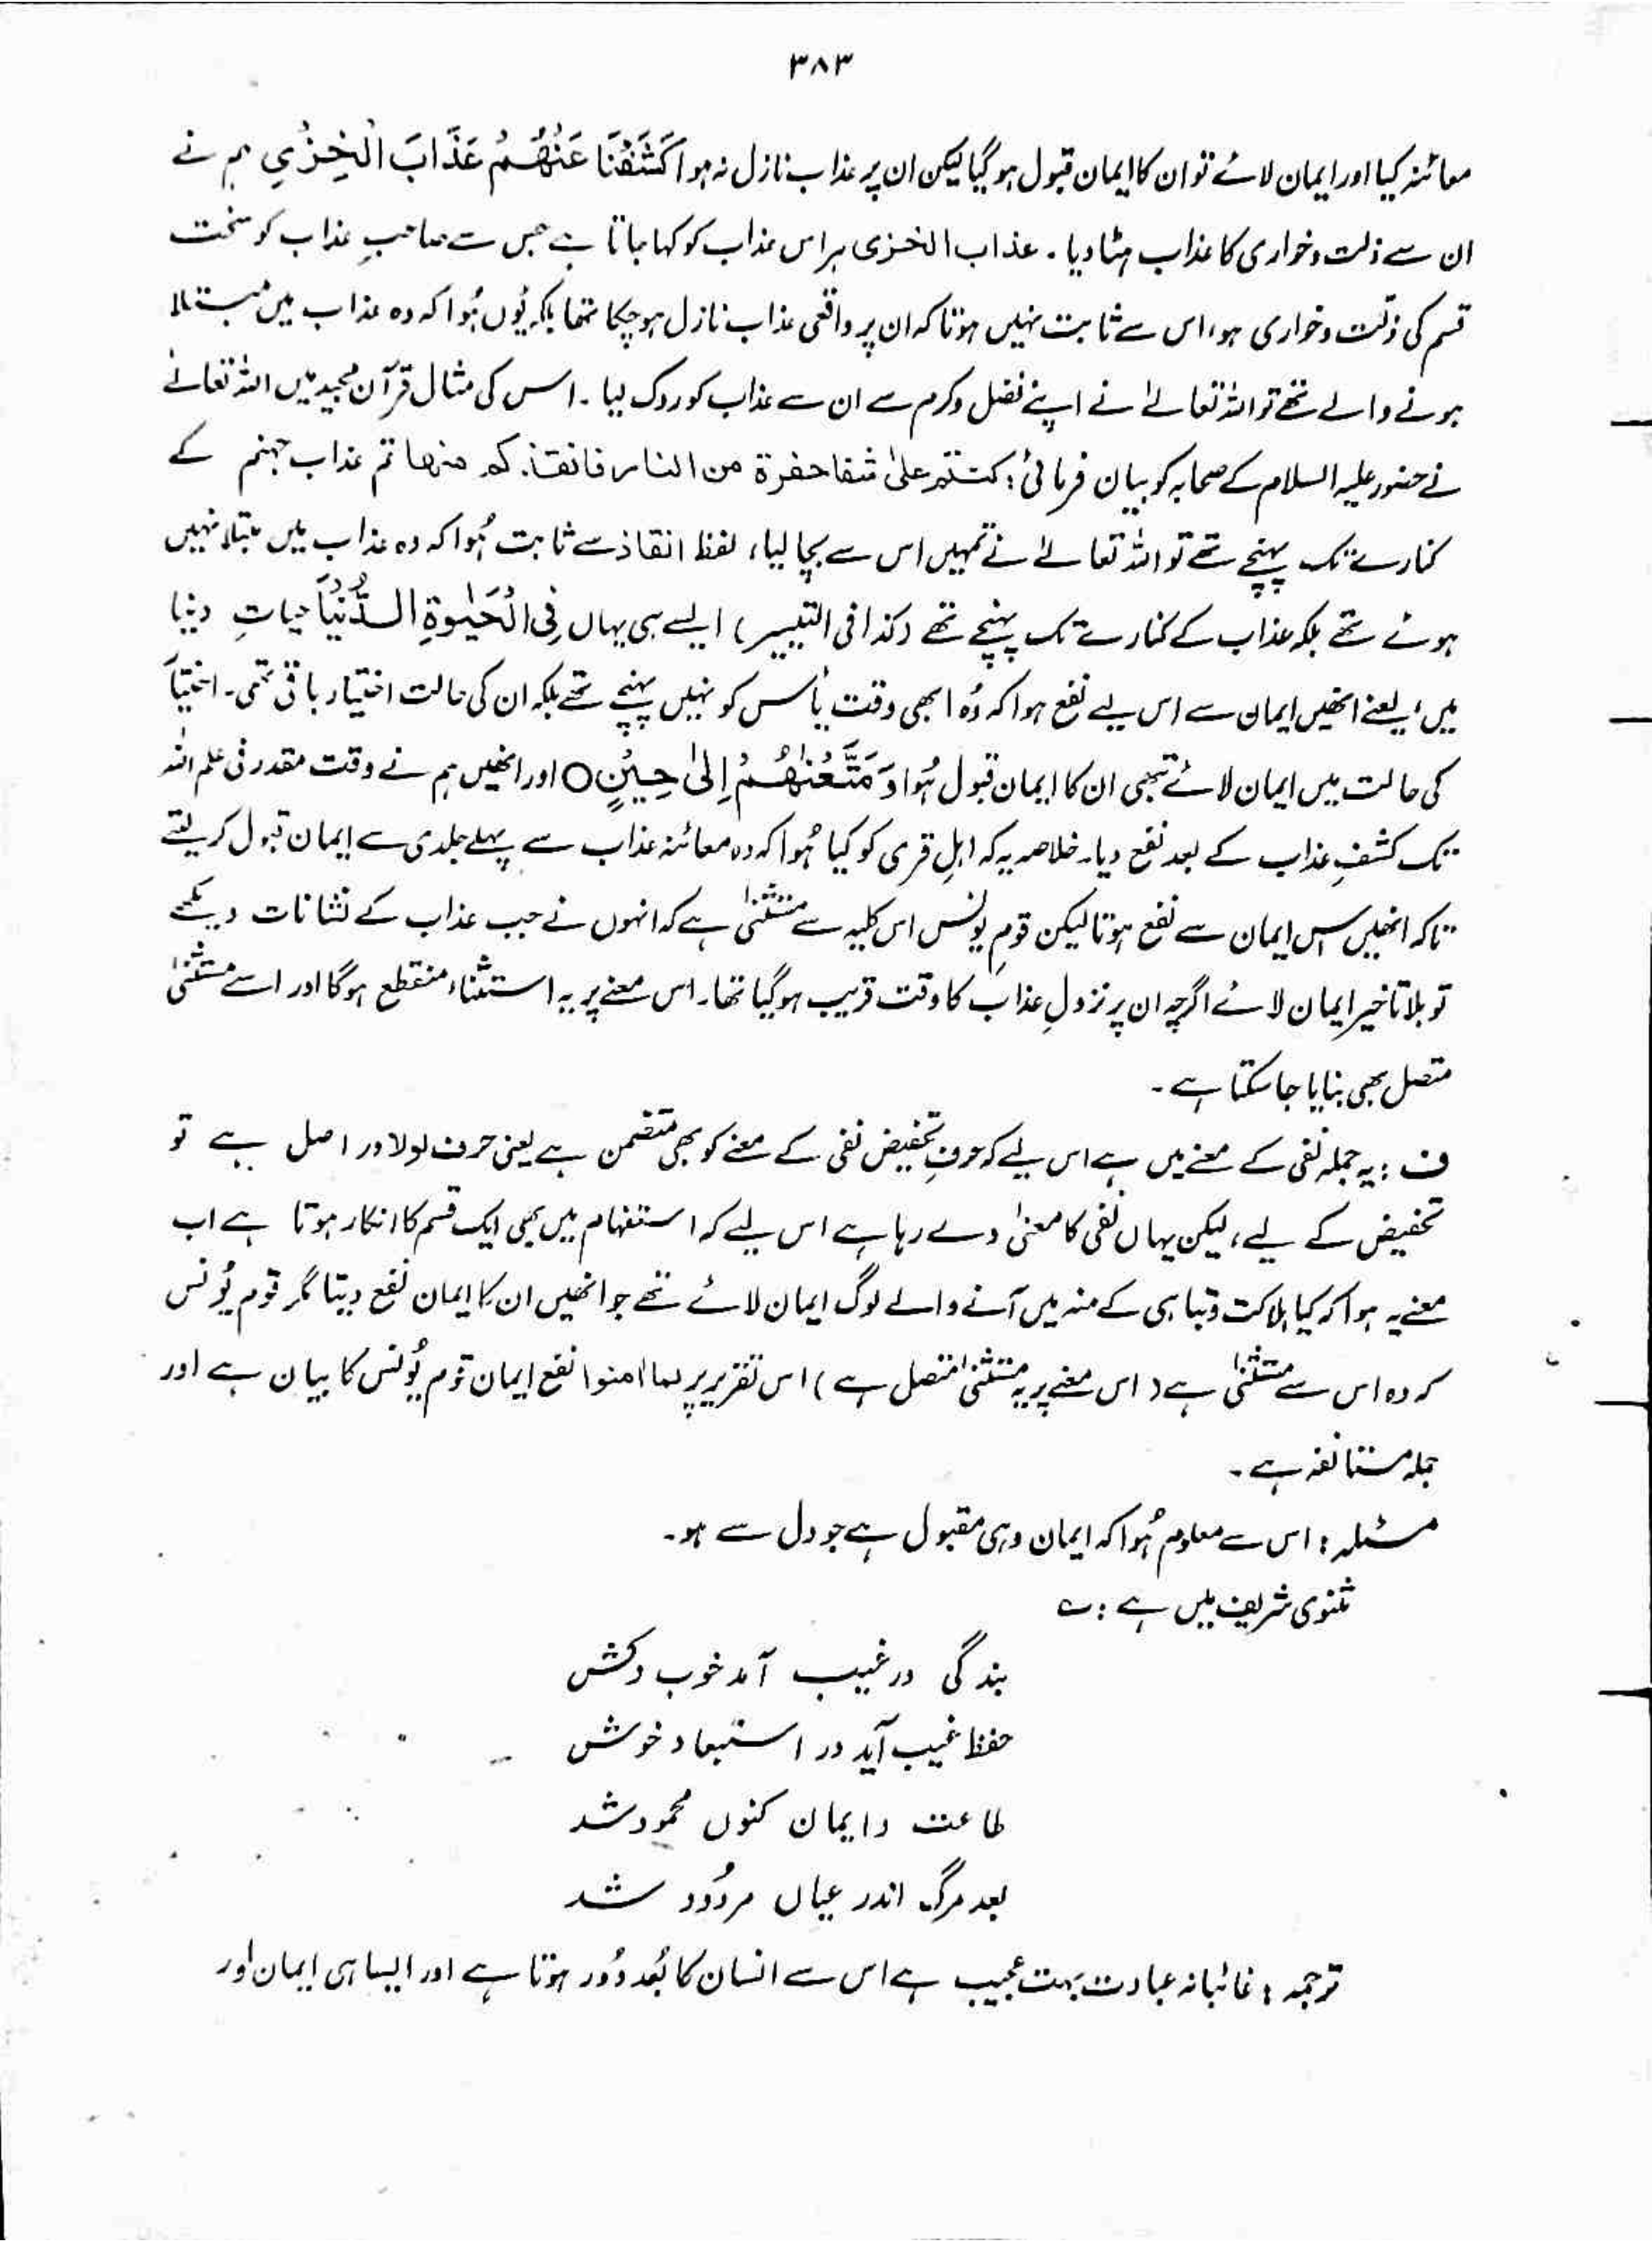 ۳۸۳
معائنہ کیا اور ایمان لائے تو ان کا ایمان قبول ہو گیا لیکن ان پر عذاب نازل نہ ہوا كَشَفْنَا عَنْهُمْ عَذَابَ الْخِزْيِ ہم نے
ان سے ذلت و خواری کا عذاب ہٹا دیا ۔ عذاب الخزی ہر اس عذاب کو کہا جاتا ہے جس سے صاحبِ عذاب کو سخت
قسم کی ذلّت و خواری ہو، اس سے ثابت نہیں ہوتا کہ ان پر واقعی عذاب نازل ہو چکا تھا بلکہ یُوں ہُوا کہ وہ عذاب میں مبتلا
ہونے والے تھے تو اللہ تعالےٰ نے اپنے فضل و کرم سے ان سے عذاب کو روک لیا ۔ اس کی مثال قرآن مجید میں اللہ تعالےٰ
نے حضور علیہ السلام کے صحابہ کو بیان فرمائی: کنتم علیٰ شفا حفرۃ من النار فانقذ کم منھا تم عذاب جہنم کے
کنارے تک پہنچے تھے تو اللہ تعالےٰ نے تمہیں اس سے بچا لیا، لفظ انقاذ سے ثابت ہُوا کہ وہ عذاب میں مبتلا نہیں
ہوئے تھے بلکہ عذاب کے کنارے تک پہنچے تھے (کذا فی التیسیر) ایسے ہی یہاں فِی الْحَیٰوةِ الدُّنْیَا حیاتِ دنیا
میں، یعنے انھیں ایمان سے اس لیے نفع ہوا کہ وُہ ابھی وقت یأس کو نہیں پہنچے تھے بلکہ ان کی حالت اختیار باقی تھی۔ اختیار
کی حالت میں ایمان لائے تبھی ان کا ایمان قبول ہُوا وَمَتَّعْنٰهُمْ اِلٰى حِيْنٍ ○ اور انھیں ہم نے وقت مقدر فی علم اللہ
تک کشفِ عذاب کے بعد نفع دیا۔ خلاصہ یہ کہ اہلِ قریٰ کو کیا ہُوا کہ وہ معائنہ عذاب سے پہلے جلدی سے ایمان قبول کر لیتے
تاکہ انھیں اس ایمان سے نفع ہوتا لیکن قومِ یونس اس کلیہ سے مستثنیٰ ہے کہ انہوں نے جب عذاب کے نشانات دیکھے
تو بلا تاخیر ایمان لائے اگرچہ ان پر نزولِ عذاب کا وقت قریب ہو گیا تھا۔ اس معنے پر یہ استثناء منقطع ہوگا اور اسے مستثنیٰ
متصل بھی بنایا جا سکتا ہے ۔
ف : یہ جملہ نفی کے معنے میں ہے اس لیے کہ حرفِ تخفیض نفی کے معنے کو بھی متضمن ہے یعنی حرف لولا در اصل ہے تو
تخفیض کے لیے، لیکن یہاں نفی کا معنیٰ دے رہا ہے اس لیے کہ استفہام میں بھی ایک قسم کا انکار ہوتا ہے اب
معنے یہ ہوا کہ کیا ہلاکت و تباہی کے منہ میں آنے والے لوگ ایمان لائے تھے جو انھیں ان کا ایمان نفع دیتا مگر قوم یُونس
کہ وہ اس سے مستثنیٰ ہے (اس معنے پر یہ مستثنیٰ متصل ہے) اس تقریر پر لما اٰمنوا نفع ایمان قوم یُونس کا بیان ہے اور
جملہ مستانفہ ہے ۔
مسئلہ : اس سے معلوم ہُوا کہ ایمان وہی مقبول ہے جو دل سے ہو۔
مثنوی شریف میں ہے : ؎
بندگی در غیب آمد خوب و کش
حفظ غیب آید در استبعاد خوش
طاعت و ایمان کنوں محمود شد
بعد مرگ اندر عیاں مردُود شد
ترجمہ : غائبانہ عبادت بہت عجیب ہے اس سے انسان کا بُعد دُور ہوتا ہے اور ایسا ہی ایمان اور